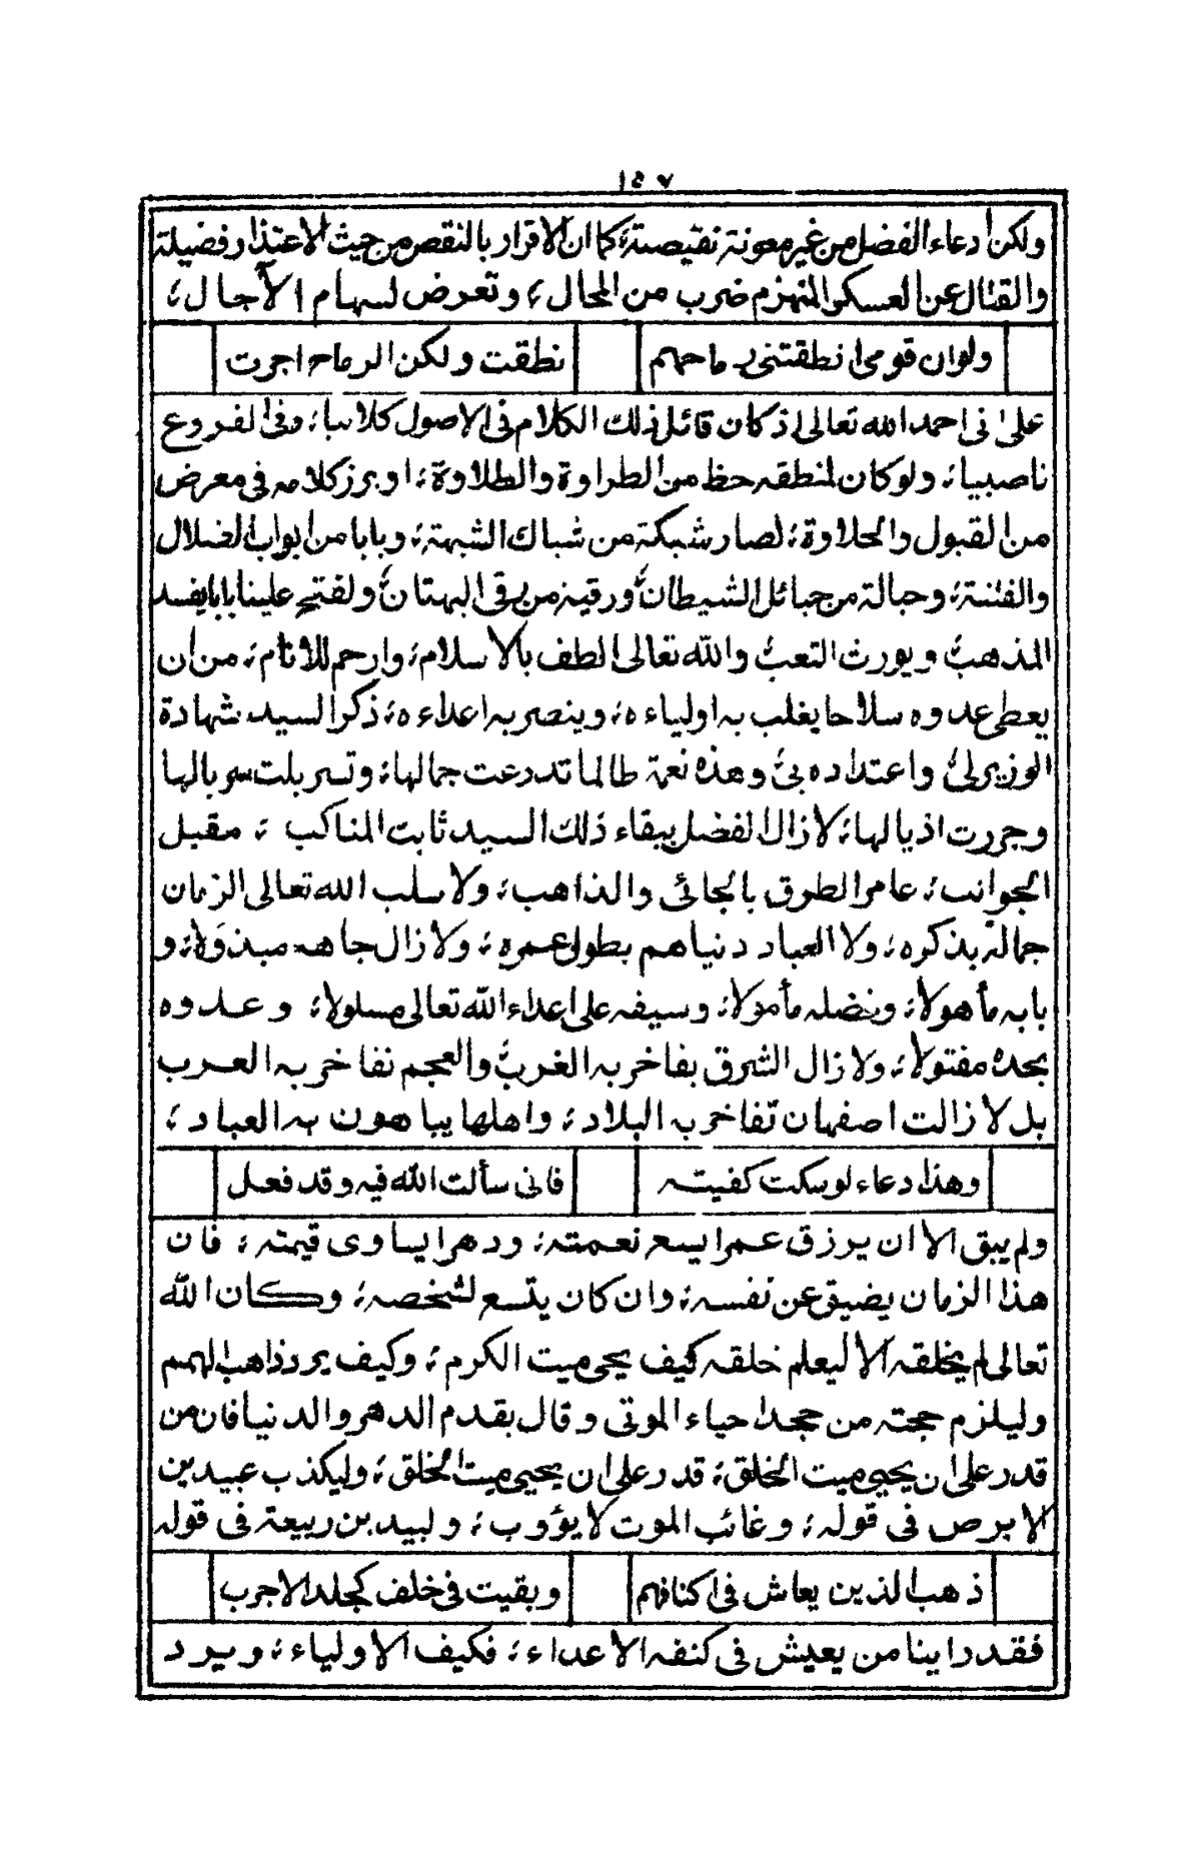 ١٥٧
ولكن ادعاء الفضل من غير معونة نقيصة؛ كما ان الاقرار بالنقص من حيث الاعتذار فضيلة
والقتال عن العسكر المنهزم ضرب من المحال؛ وتعرض لسهام الآجال؛
ولو ان قومى انطقتنى رماحهم نطقت ولكن الرماح اجرت
على انى احمد الله تعالى اذ كان قائل ذلك الكلام فى الاصول كلابيا؛ وفى الفروع
ناصبيا؛ ولو كان لمنطقه حظ من الطراوة والطلاوة؛ او برز كلامه فى معرض
من القبول والحلاوة؛ لصار شبكة من شباك الشبهة؛ وبابا من ابواب الضلال
والفتنة؛ وحبالة من حبائل الشيطان؛ ورقية من رقى البهتان؛ ولفتح علينا بابا يفسد
المذهب؛ ويورث التعب؛ والله تعالى الطف بالاسلام؛ وارحم للانام؛ من ان
يعطى عدوه سلاحا يغلب به اولياءه؛ وينصر به اعداءه؛ ذكر السيد شهادة
الوزير لى؛ واعتداده بى؛ وهذه نعمة طالما تدرعت جمالها؛ وتسربلت سربالها
وجررت اذيالها؛ لا زال الفضل ببقاء ذلك السيد ثابت المناكب ؛ مقبل
الجوانب؛ عامر الطرق بالجائى والذاهب؛ ولا سلب الله تعالى الزمان
جماله بذكره؛ ولا العباد دنياهم بطول عمره؛ ولا زال جاهه مبذولا؛ و
بابه مأهولا؛ وفضله مأمولا؛ وسيفه على اعداء الله تعالى مسلولا؛ وعدوه
بجده مفتولا؛ ولا زال الشرق يفاخر به الغرب؛ والعجم تفاخر به العرب
بل لا زالت اصفهان تفاخر به البلاد؛ واهلها يباهون به العباد؛
وهذا دعاء لو سكت كفيته فانى سألت الله فيه وقد فعل
ولم يبق الا ان يرزق عمرا يسع نعمته؛ ودهرا يساوى قيمته؛ فان
هذا الزمان يضيق عن نفسه؛ وان كان يتسع لشخصه؛ وكان الله
تعالى لم يخلقه الا ليعلم خلقه كيف يحيى ميت الكرم؛ وكيف يرد ذاهب الهمم
وليلزم حجته من جحد احياء الموتى وقال بقدم الدهر والدنيا فان من
قدر على ان يحيى ميت الخلق؛ قدر على ان يحيى ميت الخلق؛ وليكذب عبيد بن
الابرص فى قوله؛ وغائب الموت لا يؤوب؛ ولبيد بن ربيعة فى قوله
ذهب الذين يعاش فى اكنافهم وبقيت فى خلف كجلد الاجرب
فقد راينا من يعيش فى كنفه الاعداء؛ فكيف الاولياء؛ ويرد